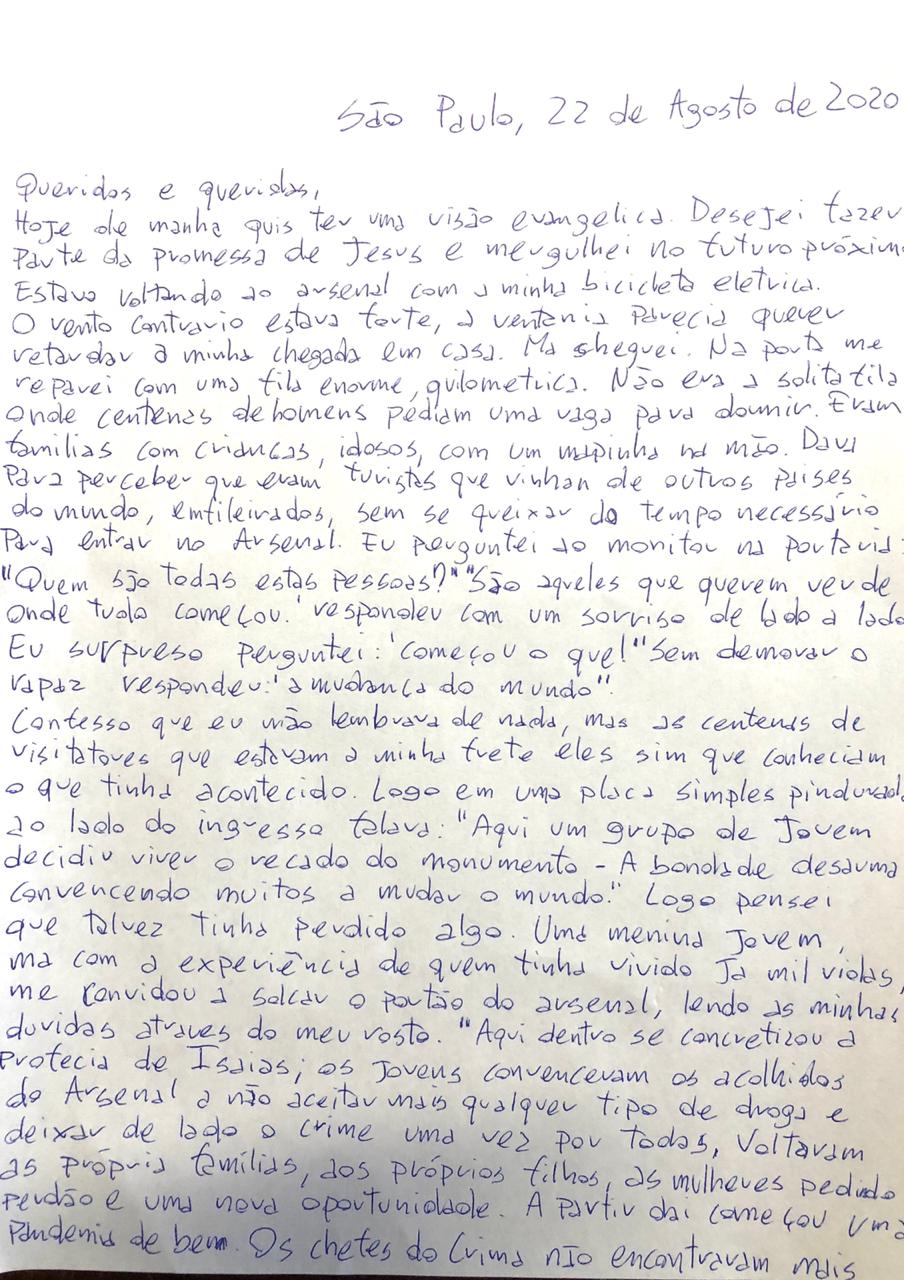 São Paulo, 22 de Agosto de 2020
Queridos e queridas,
Hoje de manha quis ter uma visão evangelica. Desejei fazer
parte da promessa de Jesus e mergulhei no futuro próxim
Estavo voltando ao arsenal com a minha bicicleta eletrica.
O vento contrario estava forte, a ventania parecia querer
retardar a minha chegada em casa. Ma sheguei. Na porta me
reparei com uma fila enorme, quilometrica. Não era a solita fila
onde centenas de homens pediam uma vaga para dormir. Eram
familias com crianças, idosos, com um mapinha na mão. Dava
para perceber que eram turistas que vinhan de outros paises
do mundo, enfileirados, sem se queixar do tempo necessário
para entrar no Arsenal. Eu perguntei ao monitor na portaria:
"Quem são todas estas pessoas?" "São aqueles que querem ver de
onde tudo começou.' respondeu com um sorriso de lado a lado
Eu surpreso perguntei: 'começou o que!" Sem demorar o
rapaz respondeu: 'a mudança do mundo".
Confesso que eu não lembrava de nada, mas as centenas de
visitatores que estavam a minha frete eles sim que conheciam
o que tinha acontecido. Logo em uma placa simples pindurad
ao lado do ingresso falava: "Aqui um grupo de Jovem
decidiu viver o recado do monumento - A bondade desarma
convencendo muitos a mudar o mundo." Logo pensei
que talvez tinha perdido algo. Uma menina Jovem,
ma com a experiência de quem tinha vivido Ja mil vidas,
me convidou a solcar o portão do arsenal, lendo as minhas
duvidas atraves do meu rosto. "Aqui dentro se concretizou a
Profecia de Isaias; os Jovens convenceram os acolhidos
do Arsenal a não aceitar mais qualquer tipo de droga e
deixar de lado o crime uma vez por todas, Voltaram
as própria famílias, aos próprios filhos, as mulheres pedindo
perdão e uma nova oportunidade. A partir dai começou uma
Pandemia de bem. Os chefes do Crima não encontravam mais